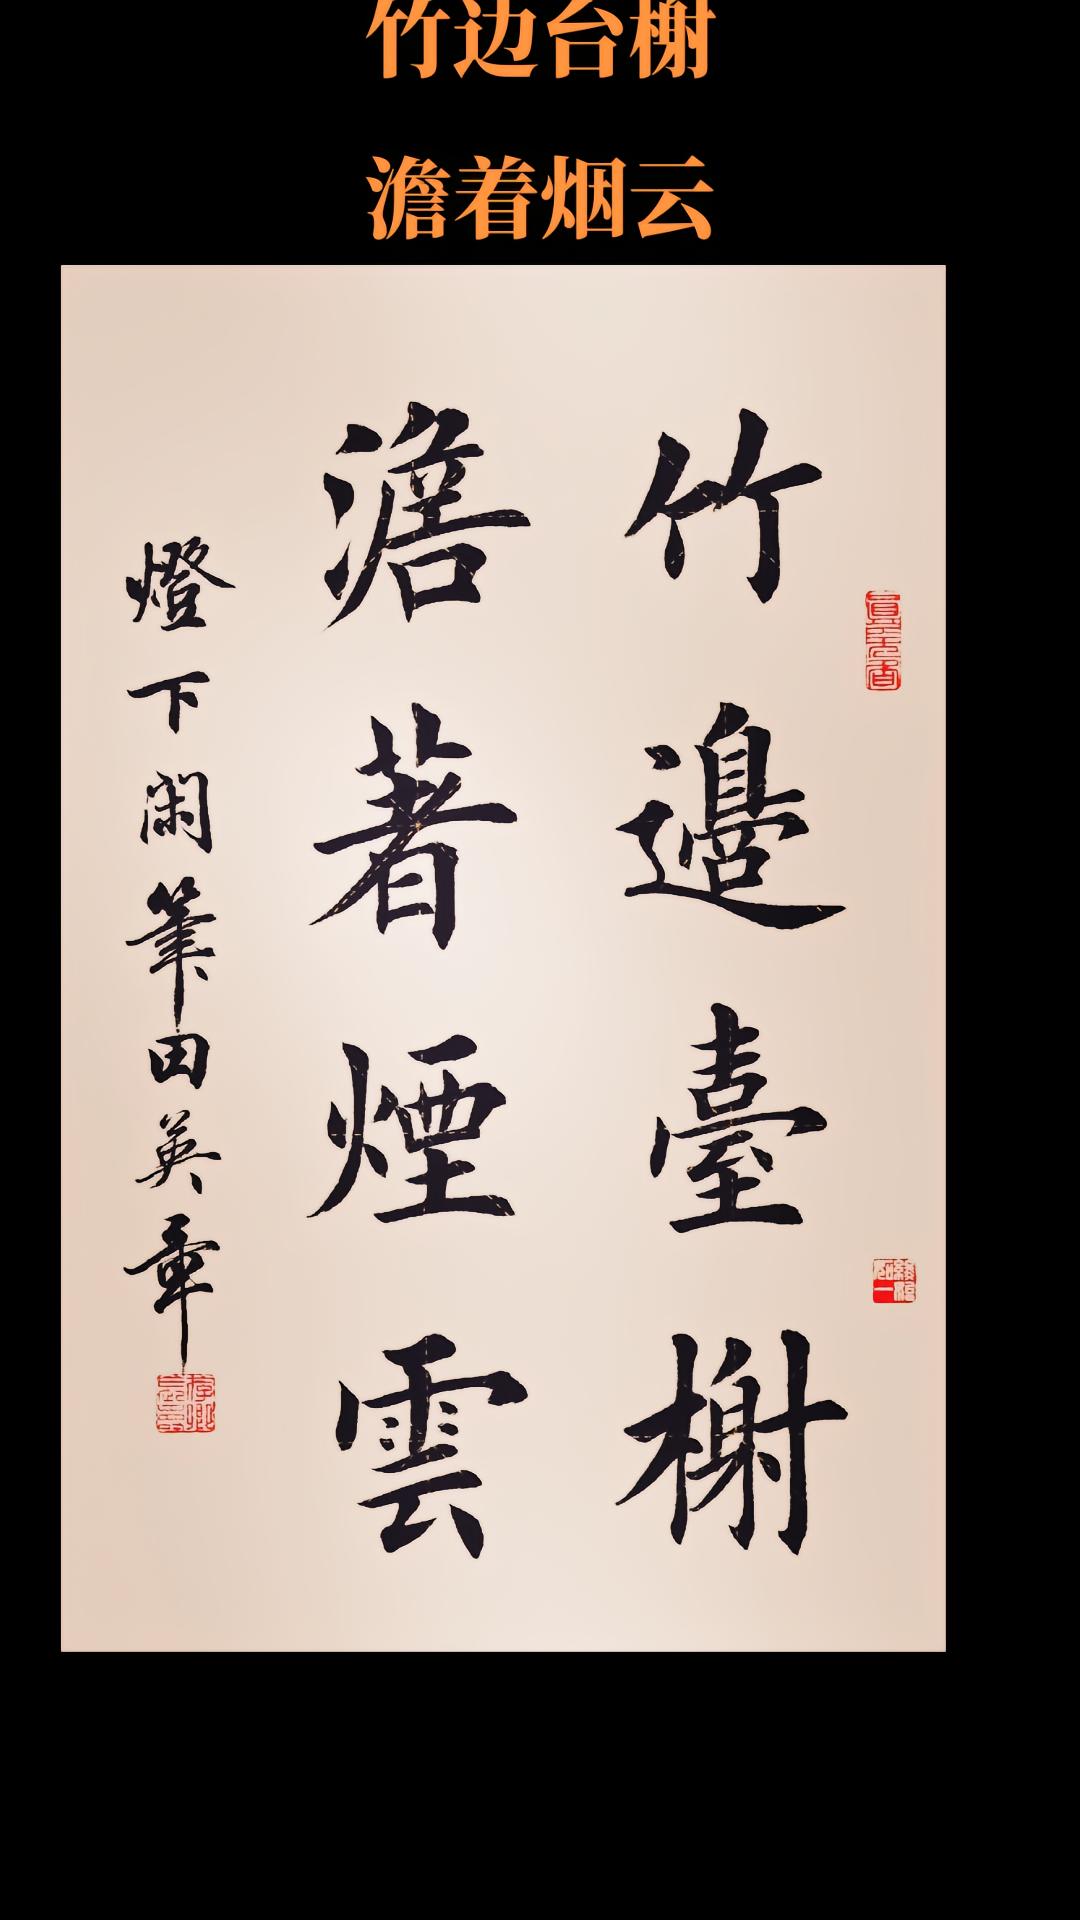 竹边台榭
澹着烟云
竹邊臺榭
澹著煙雲
燈下閑筆田英章